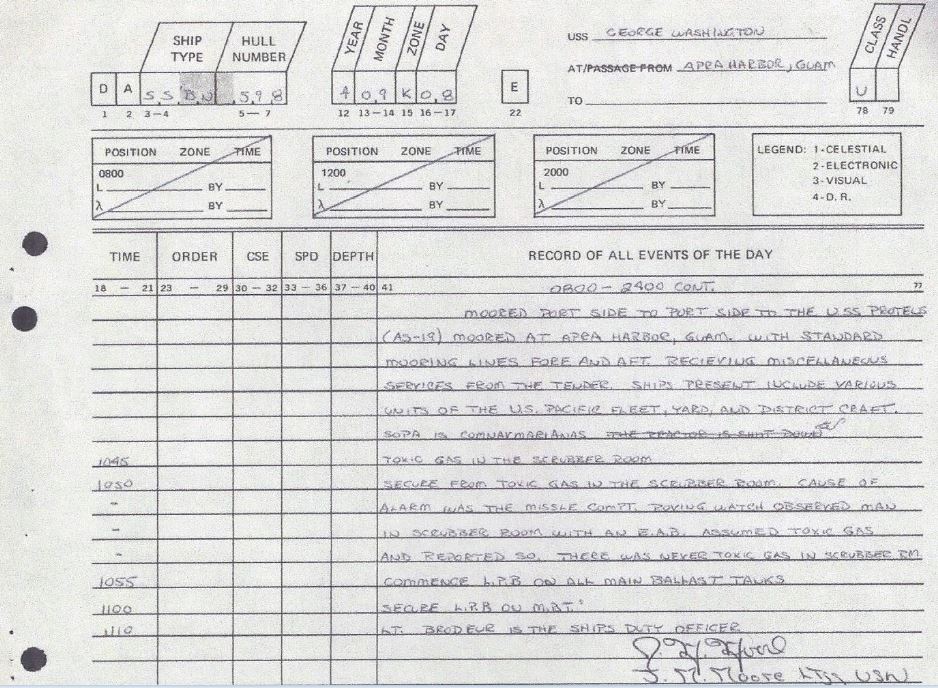 SHIP TYPE HULL NUMBER YEAR MONTH ZONE DAY CLASS HANDL
USS GEORGE WASHINGTON
AT/PASSAGE FROM APRA HARBOR, GUAM
TO
D A S S B N 5 9 8 4 0 9 K 0 8 E U
1 2 3-4 5-7 12 13-14 15 16-17 22 78 79
POSITION ZONE TIME POSITION ZONE TIME POSITION ZONE TIME
0800 1200 2000
L BY L BY L BY
λ BY λ BY λ BY
LEGEND: 1-CELESTIAL
2-ELECTRONIC
3-VISUAL
4-D.R.
TIME ORDER CSE SPD DEPTH RECORD OF ALL EVENTS OF THE DAY
18 - 21 23 - 29 30 - 32 33 - 36 37 - 40 41 0800 - 2400 CONT. 77
MOORED PORT SIDE TO PORT SIDE TO THE USS PROTEUS
(AS-19) MOORED AT APRA HARBOR, GUAM. WITH STANDARD
MOORING LINES FORE AND AFT. RECIEVING MISCELLANEOUS
SERVICES FROM THE TENDER. SHIPS PRESENT INCLUDE VARIOUS
UNITS OF THE U.S. PACIFIC FLEET, YARD, AND DISTRICT CRAFT.
SOPA IS COMNAVMARIANAS THE REACTOR IS SHUT DOWN
1045 TOXIC GAS IN THE SCRUBBER ROOM
1050 SECURE FROM TOXIC GAS IN THE SCRUBBER ROOM. CAUSE OF
- ALARM WAS THE MISSLE COMPT. ROVING WATCH OBSERVED MAN
- IN SCRUBBER ROOM WITH AN E.A.B. ASSUMED TOXIC GAS
- AND REPORTED SO. THERE WAS NEVER TOXIC GAS IN SCRUBBER RM.
1055 COMMENCE L.P.B ON ALL MAIN BALLAST TANKS
1100 SECURE L.P.B ON M.B.T.'
1110 LT. BRODEUR IS THE SHIPS DUTY OFFICER
J. M. Moore LTJG USN